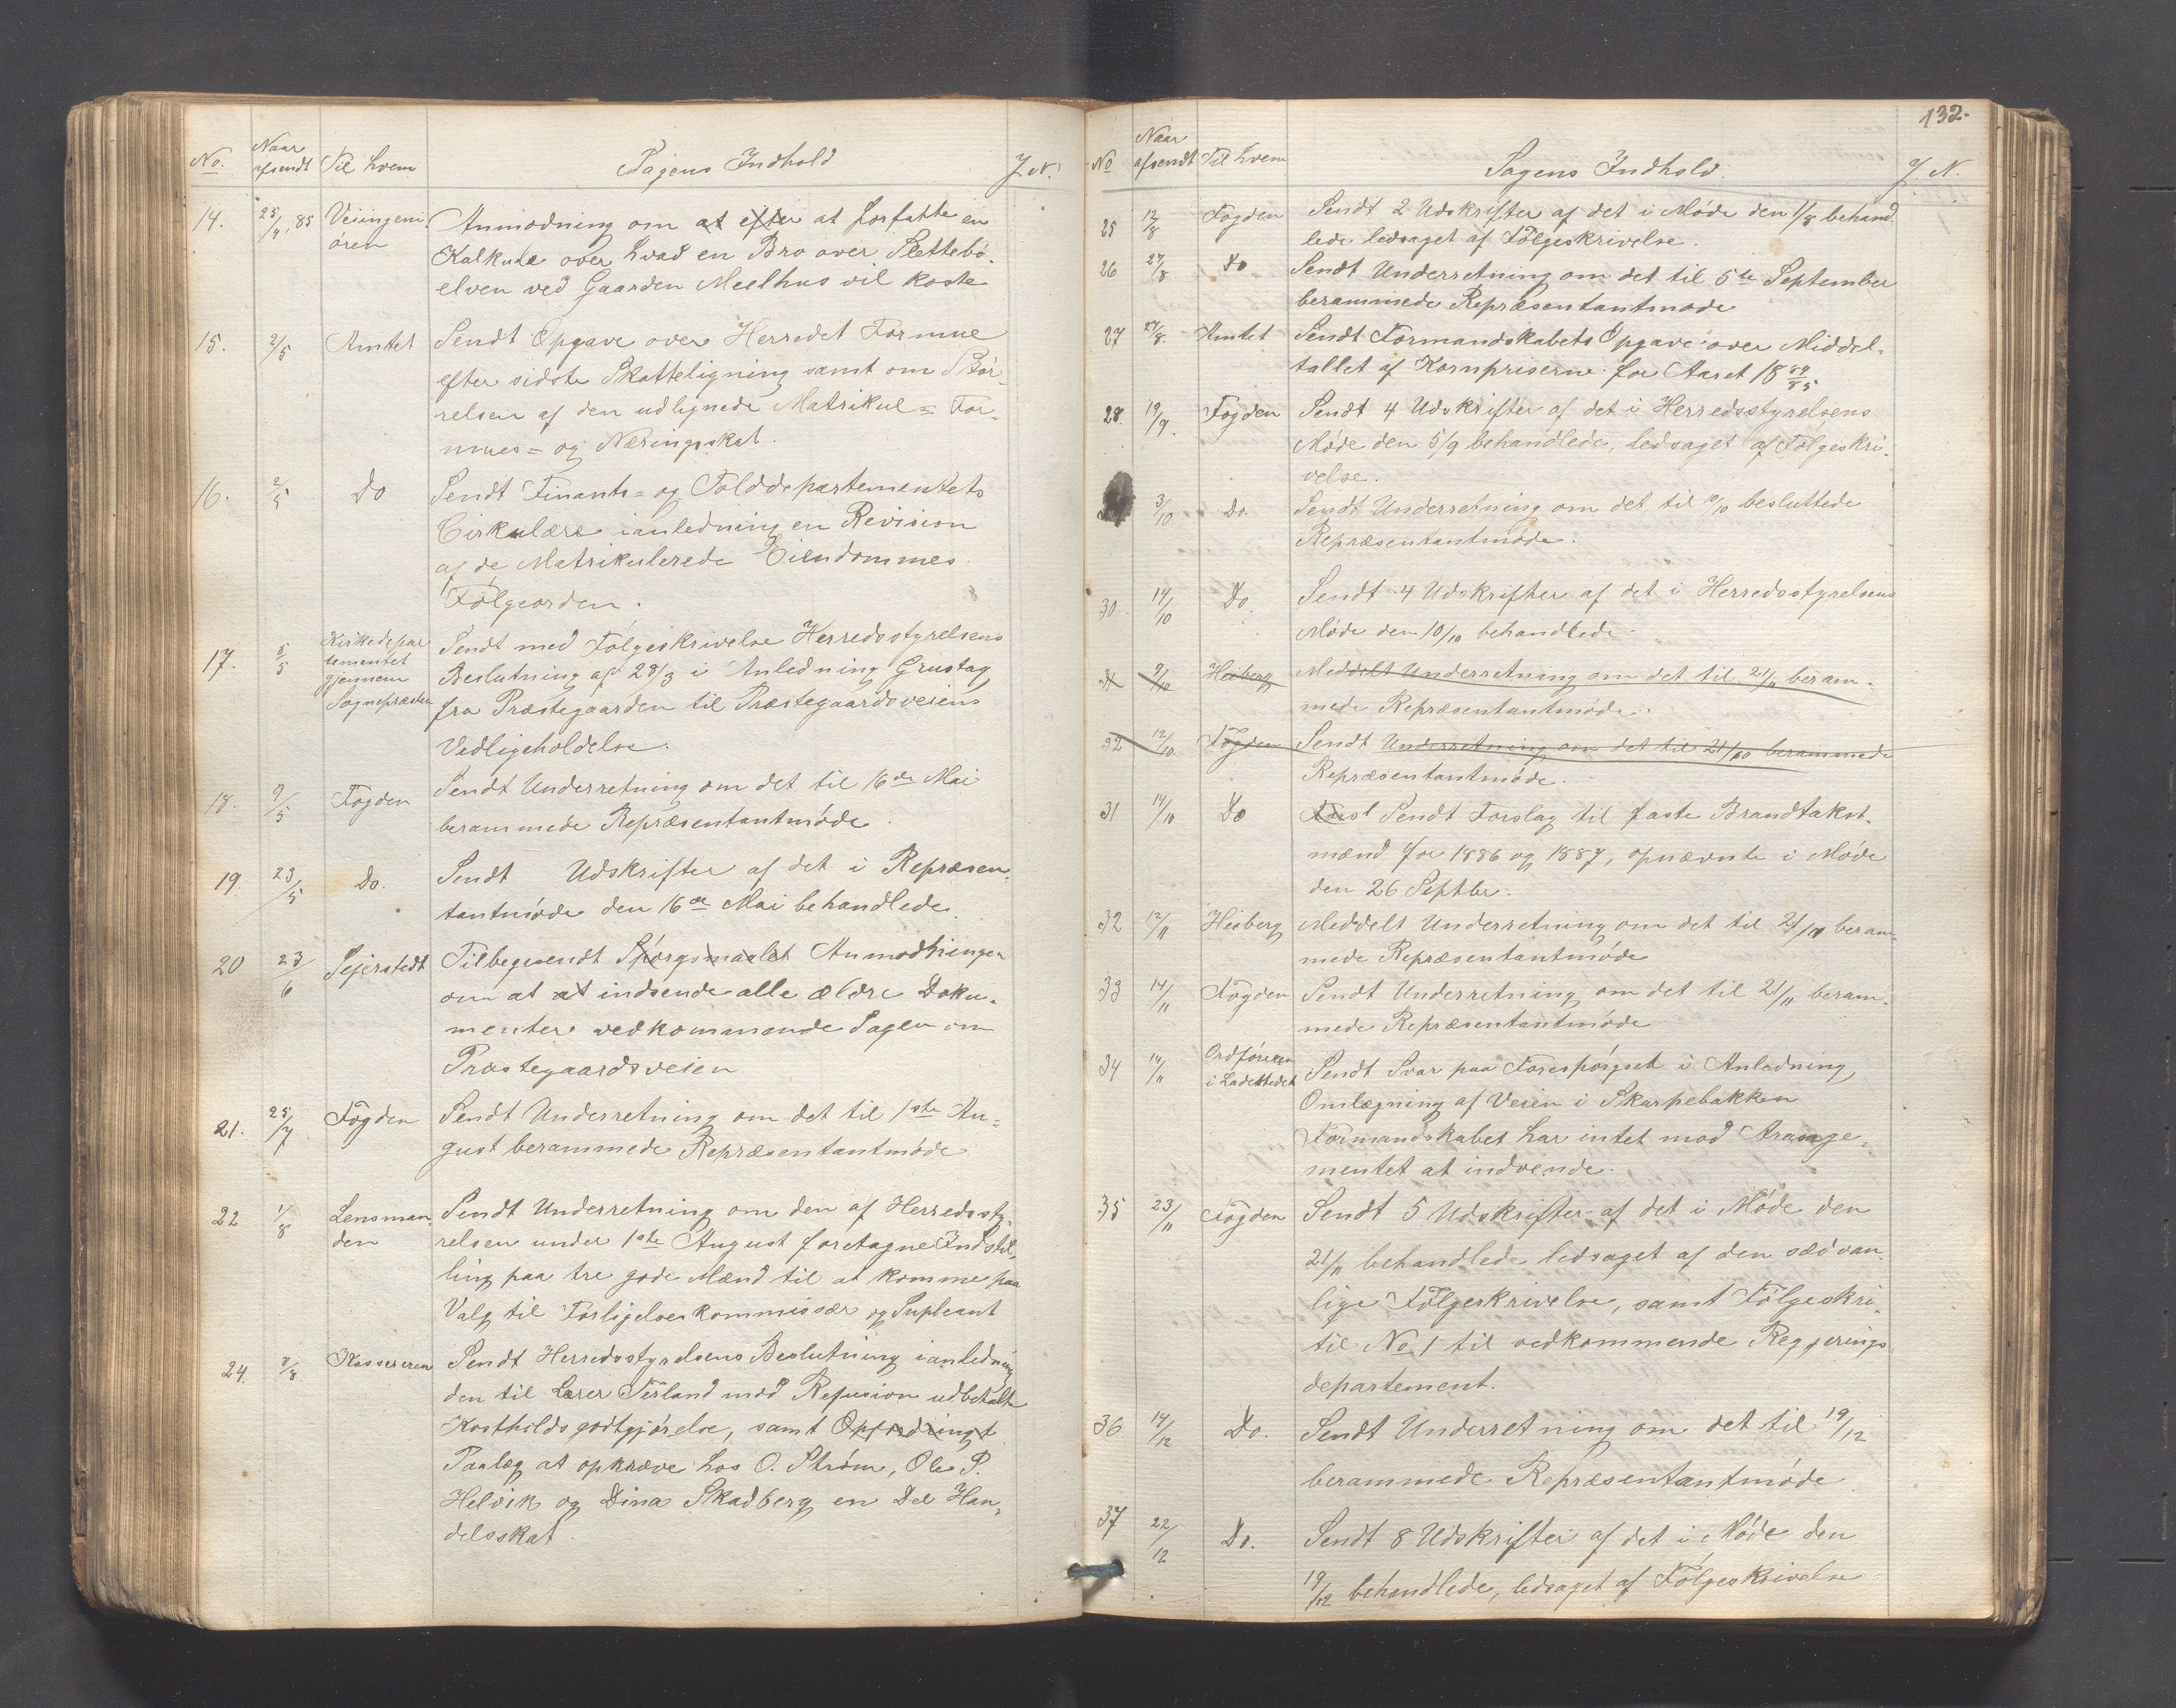 No. Naar afsendt Til hvem Sagens Indhold J.N.
14. 25/4.85 Veiingeni- Anmodning om at efter at forfatte en
ören Kalkule over hvad en Bro over Slettebö-
elven ved Gaarden Meelhus vil koste
15. 2/5 Amtet Sendt Opgave over Herredet Formue
efter sidste Skatteligning samt om Stör-
relsen af den udlignede Matrikul= For-
mues= og Næringsskat.
16. 2/5 Do Sendt Finants= og Tolddepartementets
Cirkulære ianledning en Revision
af de Matrikulerede Eiendommes
Fölgeorden.
17. 5/5 Kirkedepar Sendt med Fölgeskrivelse Herredsstyrelsens
tementet Beslutning af 28/3 i Anledning Grustag
gjennem
Sognepræsten fra Præstegaarden til Præstegaardsveiens
Vedligeholdelse.
18. 9/5 Fogden Sendt Underretning om det til 16de Mai
berammede Repræsentantmöde.
19. 23/5 Do. Sendt Udskrifter af det i Repræsen-
tantmöde den 16de Mai behandlede.
20 23/6 Sejerstedt Tilbagesendt Spörgsmaalet Anmodningen
om at at indsende alle ældre Doku-
menter vedkommende Sagen om
Præstegaardsveien
21. 25/7 Fogden Sendt Underretning om det til 1ste Au-
gust berammede Repræsentantmöde
22 1/8 Lensman- Sendt Underretning om den af Herredssty-
den relsen under 1ste August foretagne Indstil-
ling paa tre gode Mænd til at komme paa
Valg til Forligelseskommissær og Supleant
24. 8/8 Kassereren Sendt Herredsstyrelsens Beslutning ianledning
den til Lærer Tesland med Refusion udbetalte
Kostholdsgodtgjörelse, samt Opfordringt
Paalæg at opkræve hos O. Ström, Ole P.
Helvik og Dina Skadberg en Del Han-
delsskat.
132.
No Naar afsendt Til hvem Sagens Indhold. J N.
25 12/8 Fogden Sendt 2 Udskrifter af det i Möde den 1/8 behand-
lede ledsaget af Fölgeskrivelse.
26 27/8 Do Sendt Underretning om det til 5te September
berammede Repræsentantmöde
27 27/8. Amtet Sendt Formandskabets Opgave over Middel-
tallet af Kornpriserne for Aaret 18 84/85
28. 19/9. Fogden Sendt 4 Udskrifter af det i Herredsstyrelsens
Möde den 5/9 behandlede, ledsaget af Fölgeskri-
velse.
3/10 Do. Sendt Underretning om det til 10/10 besluttede
Repræsentantmöde.
30. 14/10 Do. Sendt 4 Udskrifter af det i Herredsstyrelsens
Möde den 10/10 behandlede
31 9/10 Heiberg Meddelt Underretning om det til 21/11 beram-
mede Repræsentantmöde.
32 12/10 Fogden Sendt Underretning om det til 21/10 berammede
Repræsentantmöde.
31 14/10 Do Forsl Sendt Forslag til faste Brandtakst-
mænd for 1886 og 1887, opnævnte i Möde
den 26 Septbr.
32 12/11 Heiberg Meddelt Underretning om det til 21/11 beram-
mede Repræsentantmöde
33 14/11 Fogden Sendt Underretning om det til 21/11 beram-
mede Repræsentantmöde
34 14/11 Ordföreren
i Ladestedet Sendt Svar paa Forespörgsel i Anledning
Omlægning af Veien i Skarpebakken
Formandskabet har intet mod Arange-
mentet at indvende.
35 23/11 Fogden Sendt 5 Udskrifter af det i Möde den
21/11 behandlede ledsaget af den sædvan-
lige Fölgeskrivelse, samt Fölgeskri-
til No 1 til vedkommende Regjerings
departement.
36 14/12 Do. Sendt Underretning om det til 19/12
berammede Repræsentantmöde
37 22/12 Do. Sendt 8 Udskrifter af det i Möde den
19/12 behandlede, ledsaget af Fölgeskrivelse